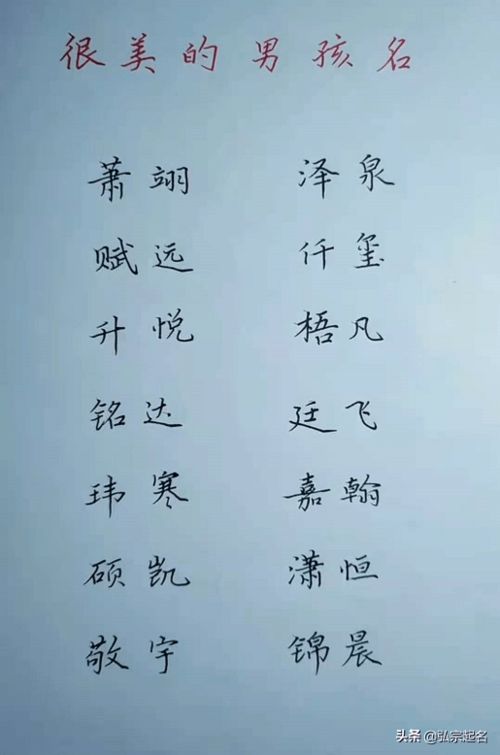 很美的男孩名
萧翊 泽泉
赋远 仟玺
升悦 梧凡
铭达 廷飞
玮寒 嘉翰
硕凯 潇恒
敬宇 锦晨
头条 @弘宗起名